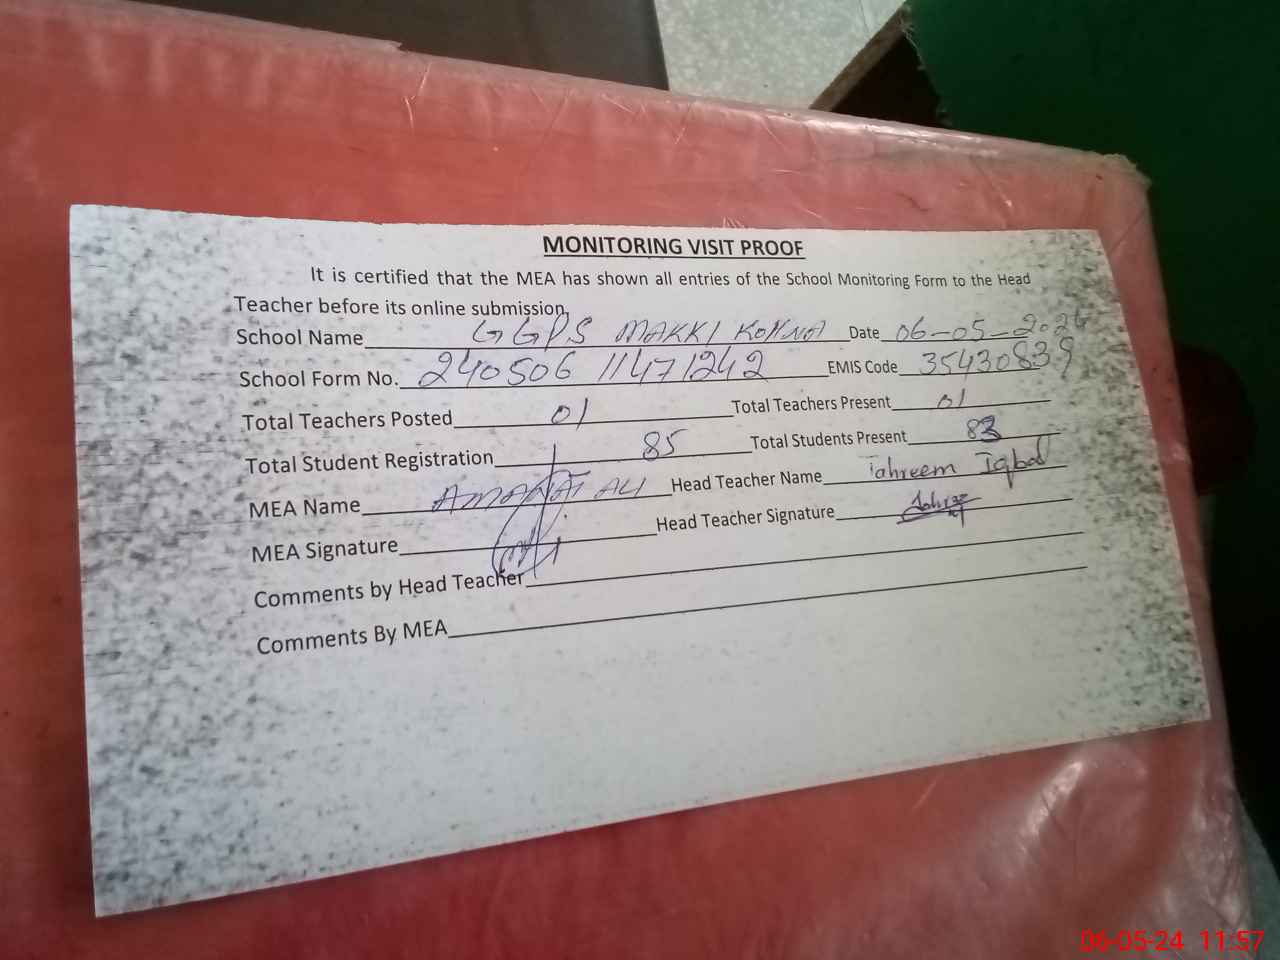 MONITORING VISIT PROOF
It is certified that the MEA has shown all entries of the School Monitoring Form to the Head
Teacher before its online submission.
School Name GGPS MAKKI KOHNA Date 06-05-2024
School Form No. 240506 11471242 EMIS Code 35430839
Total Teachers Posted 01 Total Teachers Present 01
Total Student Registration 85 Total Students Present 83
MEA Name AMANAT ALI Head Teacher Name Tahreem Iqbal
MEA Signature Head Teacher Signature
Comments by Head Teacher
Comments By MEA
06-05-24 11:57